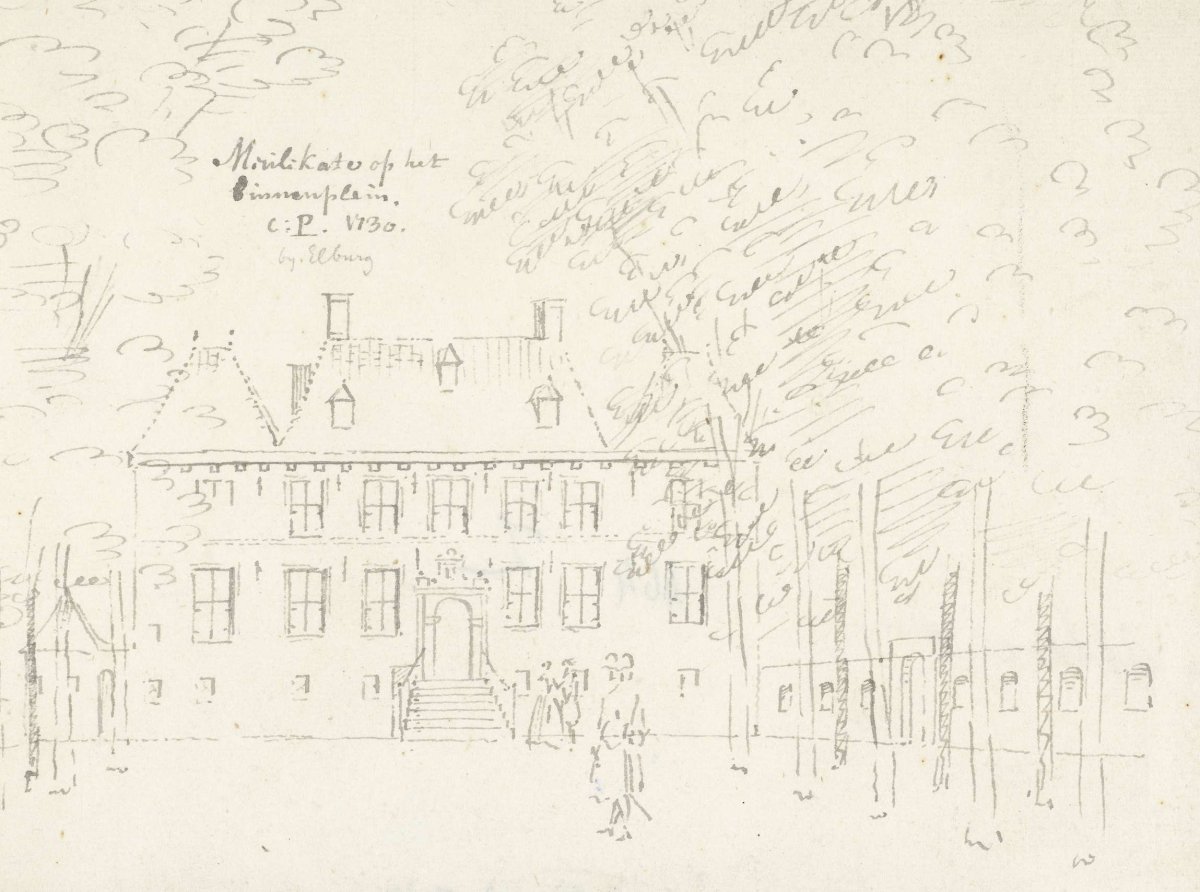 Morlikate op het
binnenplein.
C: P. 1730.
by. Elburg